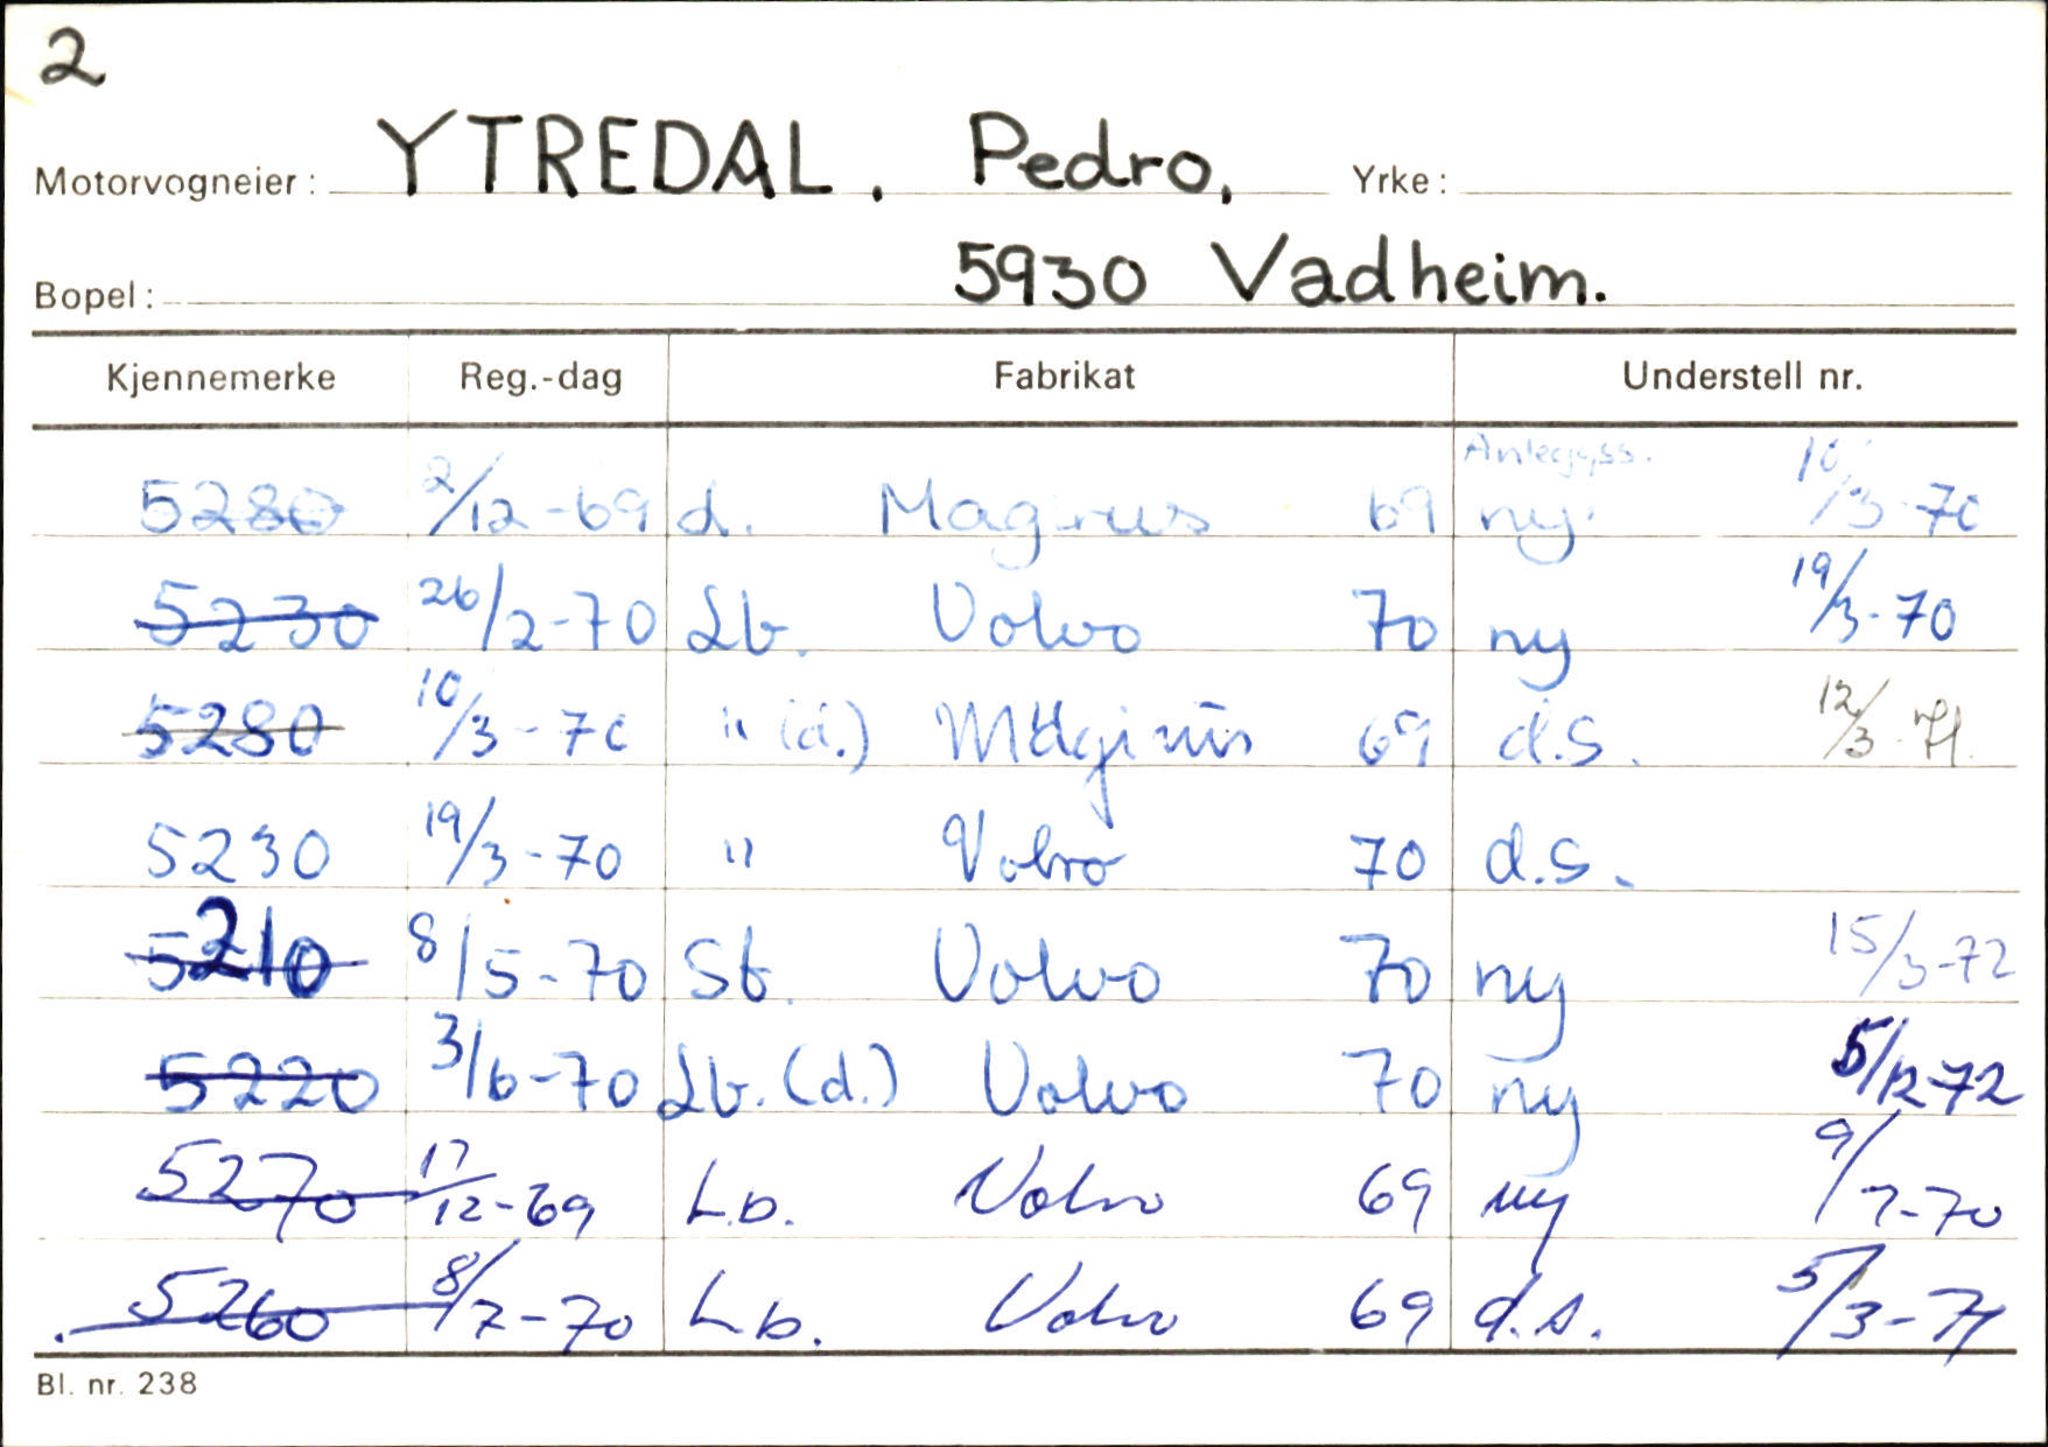 2
Motorvogneier: YTREDAL. Pedro, Yrke:
Bopel: 5930 Vadheim.
Kjennemerke Reg.-dag Fabrikat Understell nr.
5280 2/12-69 d. Magirus 69 ny 10/3-70
5230 26/2-70 Lb. Volvo 70 ny 19/3-70
5280 10/3-70 " (d.) Magirus 69 d.s. 12/3-71.
5230 19/3-70 " Volvo 70 d.s.
5210 8/5-70 Sb. Volvo 70 ny 15/3-72
5220 3/6-70 Lb. (d.) Volvo 70 ny 5/12-72
5270 17/12-69 L.b. Volvo 69 ny 9/7-70
5260 8/7-70 L.b. Volvo 69 d.s. 5/3-71
Bl. nr. 238